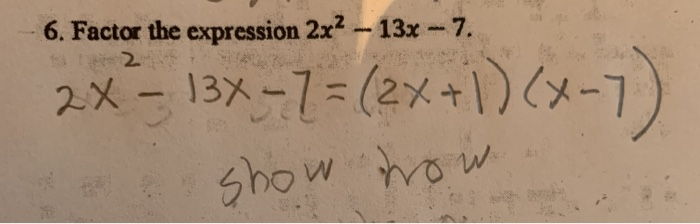 6. Factor the expression 2x² – 13x – 7.
2x² – 13x – 7 = (2x + 1) (x – 7)
show how